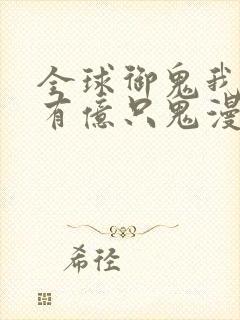 全球御鬼我
有億只鬼漫
希徑